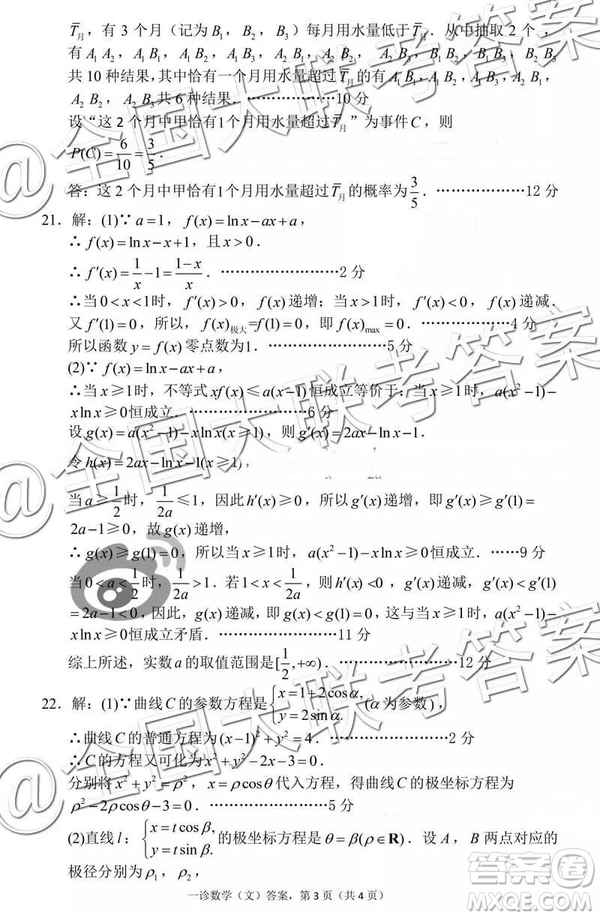 T̅月，有 3 个月（记为 B₁，B₂，B₃）每月用水量低于 T̅月．从中抽取 2 个，
有 A₁A₂，A₁B₁，A₁B₂，A₁B₃，A₂B₁，A₂B₂，A₂B₃，B₁B₂，B₁B₃，B₂B₃
共 10 种结果，其中恰有一个月用水量超过 T̅月 的有 A₁B₁，A₁B₂，A₁B₃，A₂B₁，
A₂B₂，A₂B₃ 共 6 种结果．………………10 分
设“这 2 个月中甲恰有1个月用水量超过 T̅月”为事件 C，则
P(C)=6/10=3/5．
答：这 2 个月中甲恰有1个月用水量超过 T̅月 的概率为 3/5．………………12 分
21．解：(1)∵ a=1，f(x)=ln x−ax+a，
∴ f(x)=ln x−x+1，且 x>0．
∴ f′(x)=1/x−1=(1−x)/x．………………2 分
∴当 0<x<1时，f′(x)>0，f(x)递增；当 x>1时，f′(x)<0，f(x)递减．
又 f′(1)=0，所以，f(x)极大=f(1)，即 f(x)max=0．………………4 分
所以函数 y=f(x)零点数为1．………………5 分
(2)∵ f(x)=ln x−ax+a，
∴当 x≥1时，不等式 xf(x)≤a(x−1)恒成立等价于：当 x≥1时，a(x²−1)−
x ln x≥0恒成立．………………6 分
设 g(x)=a(x²−1)−x ln x(x≥1)，则 g′(x)=2ax−ln x−1．
令 h(x)=2ax−ln x−1(x≥1)，
当 a≥1/2 时，1/2a≤1，因此 h′(x)≥0，h(x)递增，即 g′(x)≥g′(1)=
2a−1≥0，故 g(x)递增，
∴ g(x)≥g(1)=0，所以当 x≥1时，a(x²−1)−x ln x≥0恒成立．……9 分
当 0<a<1/2 时，1/2a>1．若 1<x<1/2a，则 h′(x)<0，g′(x)递减，g′(x)<g′(1)
=2a−1<0，因此，g(x)递减，即 g(x)<g(1)=0，这与当 x≥1时，a(x²−1)−
x ln x≥0恒成立矛盾．………………11 分
综上所述，实数 a 的取值范围是 [1/2,+∞)．………………12 分
22．解：(1)∵曲线 C 的参数方程是 {x=1+2cosα, y=2sinα. (α为参数)，
∴曲线 C 的普通方程为 (x−1)²+y²=4．………………2 分
∴C 的方程又可化为 x²+y²−2x−3=0．
分别将 ρ²=x²+y²，x=ρcosθ代入方程，得曲线 C 的极坐标方程为
ρ²−2ρcosθ−3=0．………………5 分
(2)直线 l：{x=t cosβ, y=t sinβ. 的极坐标方程是 θ=β(ρ∈R)．设 A，B 两点对应的
极径分别为 ρ₁，ρ₂，
一诊数学（文）答案，第 3 页（共 4 页）
@全国大联考答案
@全国大联考答案
@全国大联考答案
答案圈
MXQE.COM